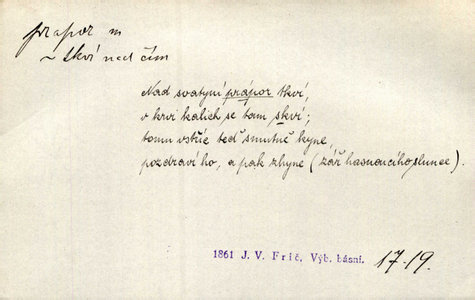 prapor m
~ skví nad čím
Nad svatyní prápor tkví,
v krvi kalich se tam skví;
tomu vstříc teď smutně kyne,
pozdraví ho, a pak zhyne (zář hasnoucího slunce).
1861 J. V. Frič, Výb. básní. 17-19.